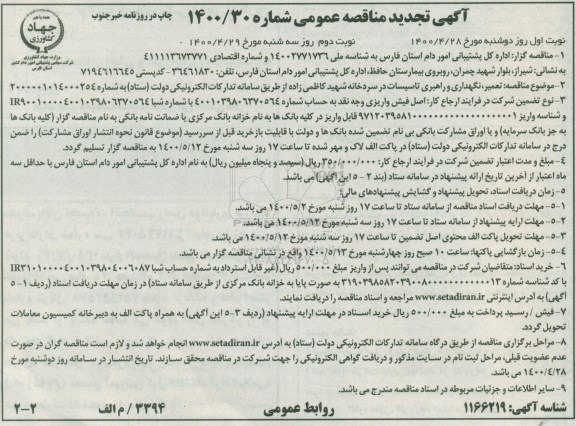 همه باهم
جهاد
کشاورزی
وزارت جهاد کشاورزی
شرکت سهامی پشتیبانی امور دام کشور
استان فارس
آگهی تجدید مناقصه عمومی شماره ۱۴۰۰/۳۰
چاپ در روزنامه خبرجنوب
نوبت اول روز دوشنبه مورخ ۱۴۰۰/۴/۲۸ نوبت دوم روز سه شنبه مورخ ۱۴۰۰/۴/۲۹
۱- مناقصه گزار: اداره کل پشتیبانی امور دام استان فارس به شناسه ملی ۱۴۰۰۲۷۷۱۷۳۶ و شماره اقتصادی ۴۱۱۱۱۳۶۷۳۷۷۱
به نشانی: شیراز، بلوار شهید چمران، روبروی بیمارستان حافظ، اداره کل پشتیبانی امور دام استان فارس، تلفن: ۳۶۴۶۱۸۳۰ - کدپستی ۷۱۹۴۶۱۶۶۴۵
۲- موضوع مناقصه: تعمیر، نگهداری و راهبری تاسیسات در سردخانه شهید کاظمی زاده از طریق سامانه تدارکات الکترونیکی دولت (ستاد) به شماره ۲۰۰۰۰۰۱۰۱۴۰۰۰۰۲۵۴
۳- نوع تضمین شرکت در فرایند ارجاع کار: اصل فیش واریزی وجه نقد به حساب شماره ۴۰۰۱۰۳۹۸۰۶۳۷۰۵۶۴ با شماره شبا IR۹۰۰۱۰۰۰۰۴۰۰۱۰۳۹۸۰۶۳۷۰۵۶۴
و شناسه واریز قابل واریز در کلیه بانک ها به نام خزانه بانک مرکزی یا ضمانت نامه بانکی به نام مناقصه گزار (کلیه بانک ها
به جز بانک سرمایه) و یا اوراق مشارکت بانکی بی نام تضمین شده بانک ها و دولت با قابلیت بازخرید قبل از سررسید (موضوع قانون نحوه انتشار اوراق مشارکت) را ضمن
درج در سامانه تدارکات الکترونیکی دولت (ستاد) در پاکت الف لاک و مهر شده تا ساعت ۱۷ روز سه شنبه مورخ ۱۴۰۰/۵/۱۲ به مناقصه گزار تسلیم گردد.
۴- مبلغ و مدت اعتبار تضمین شرکت در فرآیند ارجاع کار: ۳۵۰/۰۰۰/۰۰۰ ریال (سیصد و پنجاه میلیون ریال) به نام اداره کل پشتیبانی امور دام استان فارس با حداقل سه
ماه اعتبار از آخرین تاریخ ارائه پیشنهاد در سامانه ستاد (بند ۲-۵ این آگهی) می باشد.
۵- زمان دریافت اسناد، تحویل پیشنهاد و گشایش پیشنهادهای مالی:
۱-۵- مهلت دریافت اسناد مناقصه از سامانه ستاد تا ساعت ۱۷ روز شنبه مورخ ۱۴۰۰/۵/۲ می باشد.
۲-۵- مهلت ارایه پیشنهاد از سامانه ستاد تا ساعت ۱۷ روز سه شنبه مورخ ۱۴۰۰/۵/۱۲ می باشد.
۳-۵- مهلت تحویل پاکت الف محتوی اصل تضمین تا ساعت ۱۷ روز سه شنبه مورخ ۱۴۰۰/۵/۱۲ می باشد.
۴-۵- زمان بازگشایی پاکتها: ساعت ۱۰ صبح روز چهارشنبه مورخ ۱۴۰۰/۵/۱۳ واقع در نشانی مناقصه گزار می باشد.
۶- خرید اسناد: متقاضیان شرکت در مناقصه می توانند پس از واریز مبلغ ۵۰۰/۰۰۰ ریال (غیر قابل استرداد به شماره حساب شبا IR۳۱۰۱۰۰۰۰۴۰۰۱۰۳۹۸۰۴۰۰۶۰۸۷
با کد شناسه شماره به صورت پایا به خزانه بانک مرکزی از طریق سامانه ستاد) در زمان مهلت دریافت اسناد (ردیف ۱-۵
آگهی) به آدرس اینترنتی www.setadiran.ir مراجعه و اسناد مناقصه را دریافت نمایند.
۷- فیش / رسید پرداخت به مبلغ ۵۰۰/۰۰۰ ریال خرید اسناد در مهلت ارایه پیشنهاد (ردیف ۳-۵ این آگهی) به همراه پاکت الف به دبیرخانه کمیسیون معاملات
تحویل گردد.
۸- مراحل برگزاری مناقصه از طریق درگاه سامانه تدارکات الکترونیکی دولت (ستاد) به آدرس www.setadiran.ir انجام خواهد شد و لازم است مناقصه گران در صورت
عدم عضویت قبلی، مراحل ثبت نام در سایت مذکور و دریافت گواهی الکترونیکی را جهت شرکت در مناقصه محقق سازند. تاریخ انتشار در سامانه روز دوشنبه مورخ
۱۴۰۰/۴/۲۸ می باشد.
۹- سایر اطلاعات و جزئیات مربوطه در اسناد مناقصه مندرج می باشد.
شناسه آگهی: ۱۱۶۶۲۱۹ روابط عمومی ۳۳۹۴ / م الف ۲-۲